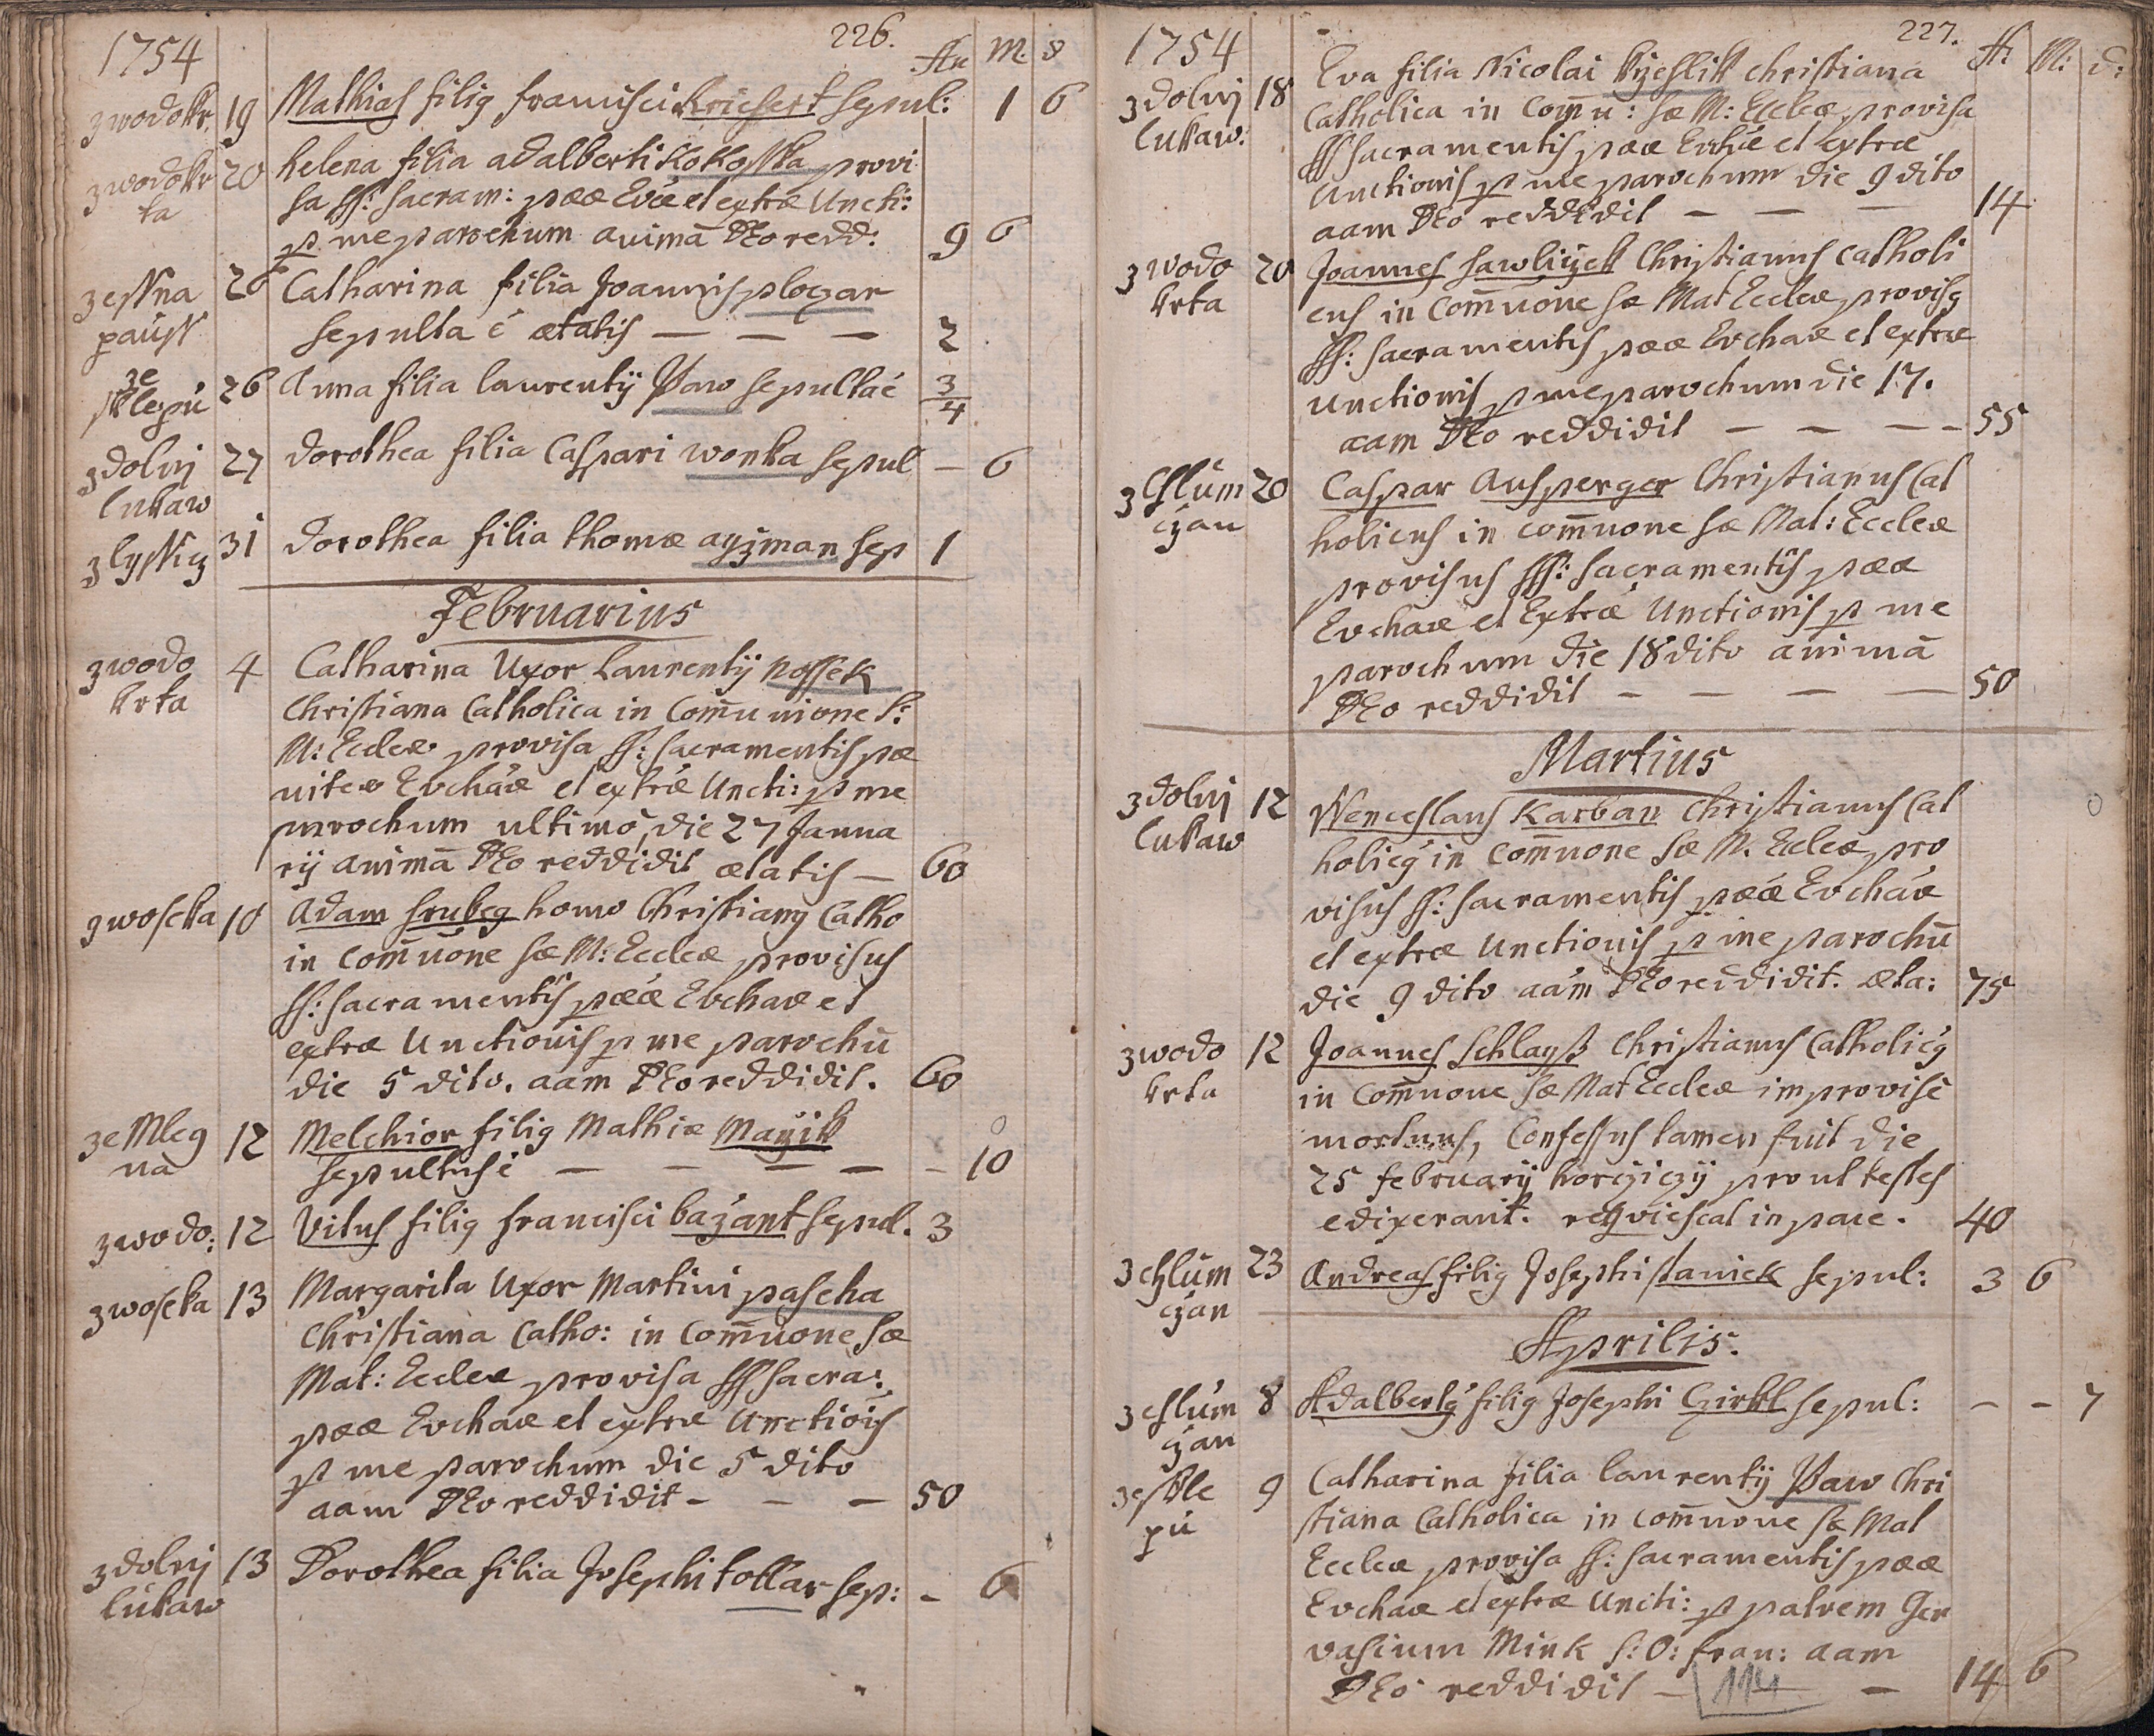 1754
226.
An M. d
z wodokr. 19 Mathias filig francisci kriesert sepul: 1 6
z wodokr 20 helena filia adalberti kokosska provi
ta sa ss: sacram: pææ Ev́æ et extræ Uncti:
p me parochum animā DEo redd: 9 6
zessna 26 Catharina filia Joannis plogar
paúss sepulta é ætatis — — — 2
ze
sklepú 26 Anna filia laurentÿ Paw sepulta é 3/4
z dolnj 27 dorothea filia Caspari wonka sepul — 6
lukaw
z lyssicz 31 dorothea filia thomæ ayzman sep 1
Februarius
z wodo 4 Catharina Uxor Laurentÿ nossek
krta Christiana Catholica in Com̄unione S:
M: Eccleæ provisa ss: sacramentis pæ
niteæ Evcháæ et extræ Uncti: p me
parochum ultimó, die 27 Janua
rÿ animā DEo reddidit ætatis — 60
z woseka 10 Adam srubeg homo Christiang Catho
in Com̄ūone sæ M: Eccleæ provisus
ss: sacramentis pæǽ Evchaæ et
extræ Unctionis p me parochū
die 5 dito. aam DEo reddidit. 60
ze Mleg 12 Melchior filig Mathiæ Mazik
na sepultus é — — — — - 10
z wodo: 12 Vitus filig francisci bażant sepul. 3
z woseka 13 Margarita Uxor Martini pascha
Christiana Catho: in Com̄uone Sæ
Mat: Eccleæ provisa sss sacra:
pææ Evchaæ et extræ Unctiōis
p me parochum die 5 dito
aam DEo reddidit - - — 50
z dolnj 13 Dorothea filia Josephi tollar sep: - 6
lukaw
1754
227.
A: M: d:
z dolnj 18 Eva filia Nicolai kyeslik christiana
lukaw: Catholica in Com̄u: sæ M: Eccleæ provisa
sss sacramentis pææ Evchæ et extræ
Unctionis p me parochum die 9 dito
aam DEo reddidit — — — 14
z wodo 20 Joannes sawliczek Christianus catholi
krta cus in Com̄uone sæ Mat Eccleæ provisg
sss: sacramentis pææ Evchaæ et extræ
Unctionis p me parochum die 17.
aam DEo reddidit — — — - 55
z Chlúm 20 Caspar Ausperger Christianus Cat
czan holicus in com̄uone sæ Mat: Eccleæ
provisus sss: sacramentis pææ
Evchaæ et Extræ Unctionis p me
parochum die 18 dito animā
DEo reddidit — — — — 50
Martius
z dolnj 12 Wenceslaus Karban Christianus Cat
lukaw holicg in Com̄uone sæ M. Eccleæ pro
visus ss: sacramentis pæǽ Evcháæ
et extræ Unctionis p me parochū
die 9 dito aam DEo reddidit. æta: 75
z wodo 12 Joannes Schlayß Christianus Catholicg
krta in Com̄uone Sæ Mat Eccleæ improvisé
mortuus, Confessus tamen fuit die
25 februarÿ horcziczÿ prout testes
edixerant. reqviescat in pace. 40
z chlúm 23 Andreas filig Josephi staniek sepul: 3 6
czan
Aprilis.
z chlúm 8 Adalbertg filig Josephi Girkl sepul: - - 7
czan
ze skle 9 Catharina filia laurentÿ Paw Chri
pú stiana Catholica in com̄uone sæ Mat
Eccleæ provisa ss: sacramentis pææ
Evchaæ et extræ Uncti: p patrem Ger
vasium Mink S: O: fran: aam
DEo reddidit — — 14 6
114